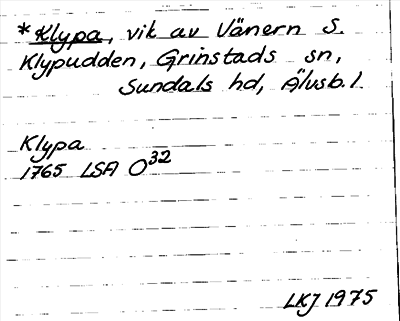 *Klypa, vik av Vänern S.
Klypudden, Grinstads sn,
Sundals hd, Älvsb. l.
Klypa
1765 LSA O32
LKJ 1975